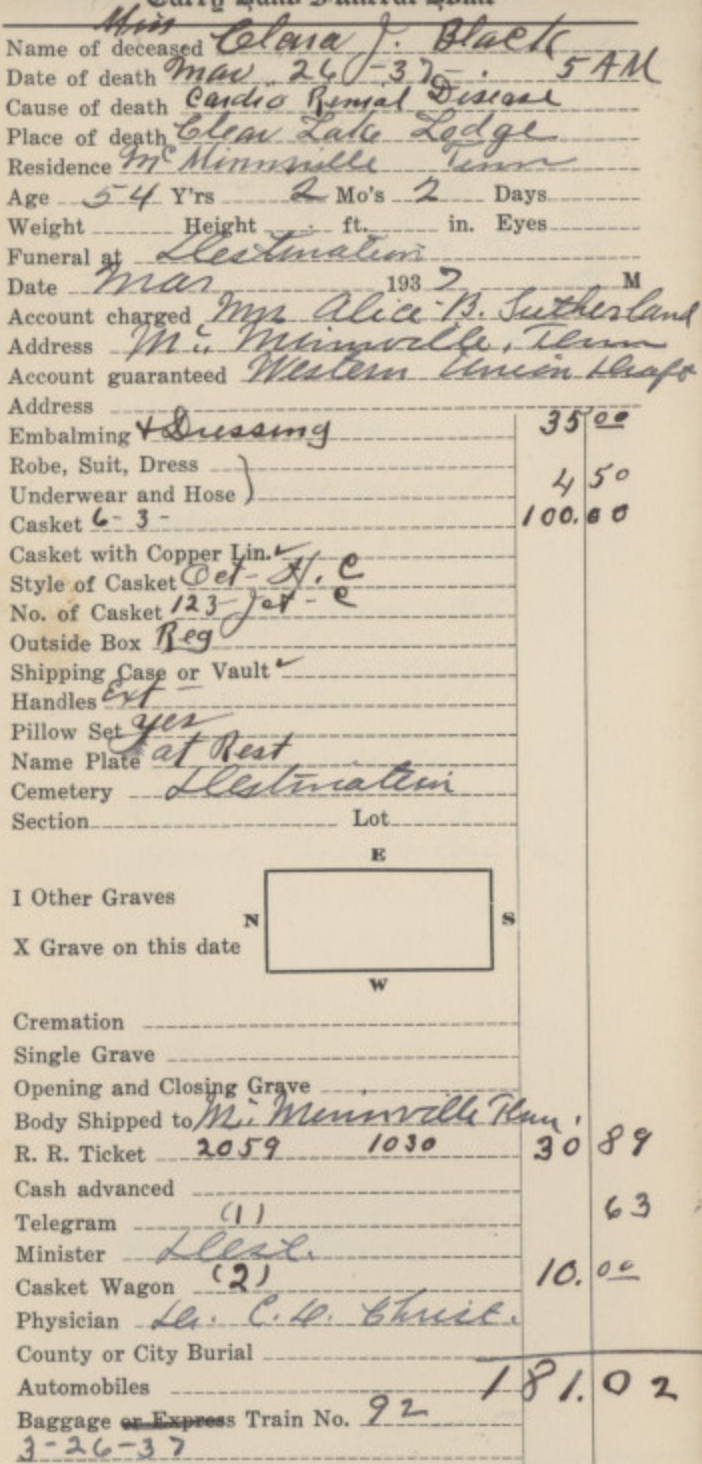 Miss
Name of deceased Clara J. Black
Date of death Mar. 26-37. 5 AM
Cause of death Cardio Renial Disease
Place of death Clear Lake Lodge
Residence McMinnville Tenn
Age 54 Y'rs 2 Mo's 2 Days
Weight Height ft. in. Eyes
Funeral at Destination
Date Mar 1937 M
Account charged Mrs Alice B. Sutherland
Address Mc Minnville, Tenn
Account guaranteed Western Union Draft
Address
Embalming + Dressing 35 00
Robe, Suit, Dress
Underwear and Hose 4 50
Casket 6-3- 100.00
Casket with Copper Lin. ✓
Style of Casket Oct- H. C
No. of Casket 123- Jet - C
Outside Box Reg
Shipping Case or Vault ✓
Handles Ext -
Pillow Set yes
Name Plate at Rest
Cemetery Destination
Section Lot
E
I Other Graves
N S
X Grave on this date
W
Cremation
Single Grave
Opening and Closing Grave
Body Shipped to Mc Minnville Tenn.
R. R. Ticket 2059 1030 30 89
Cash advanced
Telegram (1) 63
Minister Dest.
Casket Wagon (2) 10.00
Physician Dr. C. D. Christ.
County or City Burial
Automobiles 181.02
Baggage or Express Train No. 92
3-26-37